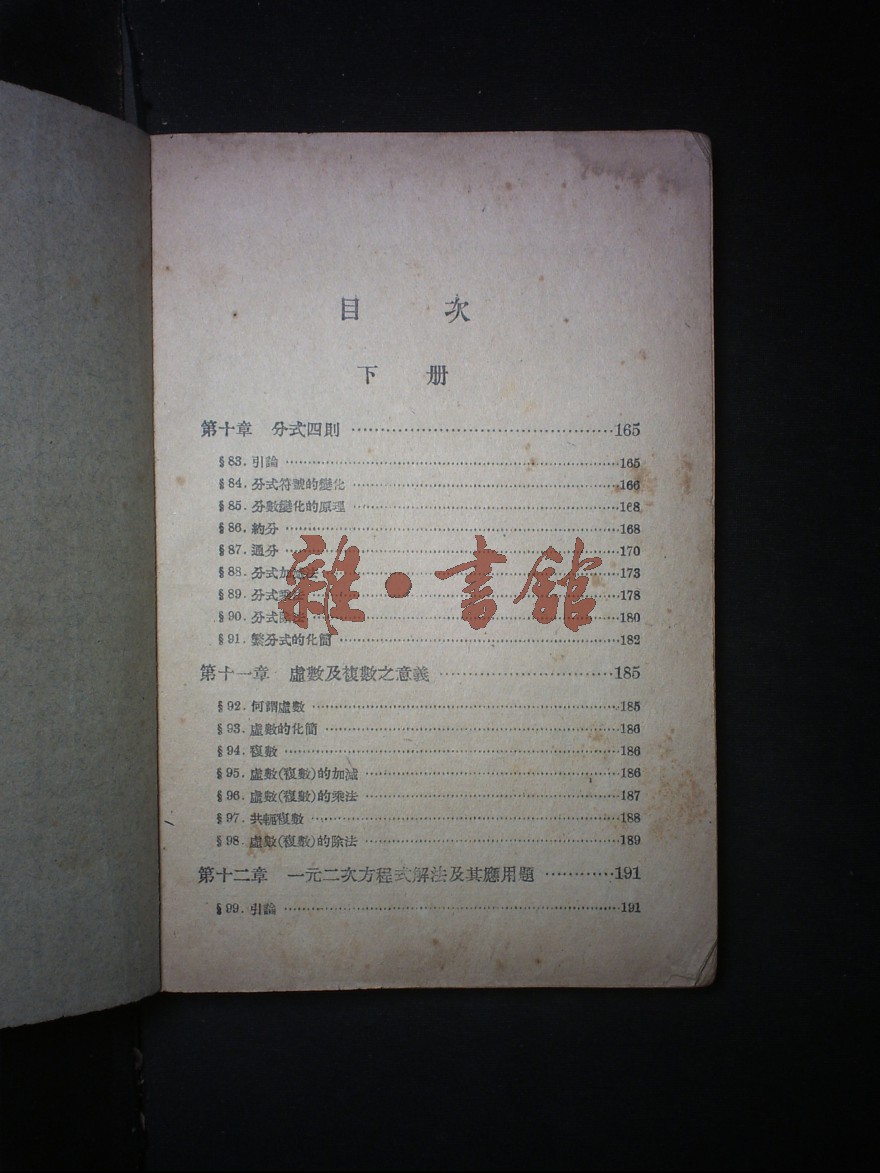 目 次
下 册
第十章 分式四則 ⋯⋯⋯⋯⋯⋯⋯⋯⋯⋯⋯⋯ 165
§83. 引論 ⋯⋯⋯⋯⋯⋯⋯⋯⋯⋯⋯⋯ 165
§84. 分式符號的變化 ⋯⋯⋯⋯⋯⋯⋯⋯⋯⋯⋯⋯ 166
§85. 分數變化的原理 ⋯⋯⋯⋯⋯⋯⋯⋯⋯⋯⋯⋯ 168
§86. 約分 ⋯⋯⋯⋯⋯⋯⋯⋯⋯⋯⋯⋯ 168
§87. 通分 ⋯⋯⋯⋯⋯⋯⋯⋯⋯⋯⋯⋯ 170
§88. 分式加減法 ⋯⋯⋯⋯⋯⋯⋯⋯⋯⋯⋯⋯ 173
§89. 分式乘法 ⋯⋯⋯⋯⋯⋯⋯⋯⋯⋯⋯⋯ 178
§90. 分式除法 ⋯⋯⋯⋯⋯⋯⋯⋯⋯⋯⋯⋯ 180
§91. 繁分式的化簡 ⋯⋯⋯⋯⋯⋯⋯⋯⋯⋯⋯⋯ 182
雜·書館
第十一章 虛數及複數之意義 ⋯⋯⋯⋯⋯⋯⋯⋯ 185
§92. 何謂虛數 ⋯⋯⋯⋯⋯⋯⋯⋯⋯⋯⋯⋯ 185
§93. 虛數的化簡 ⋯⋯⋯⋯⋯⋯⋯⋯⋯⋯⋯⋯ 186
§94. 複數 ⋯⋯⋯⋯⋯⋯⋯⋯⋯⋯⋯⋯ 186
§95. 虛數(複數)的加減 ⋯⋯⋯⋯⋯⋯⋯⋯⋯⋯⋯⋯ 186
§96. 虛數(複數)的乘法 ⋯⋯⋯⋯⋯⋯⋯⋯⋯⋯⋯⋯ 187
§97. 共軛複數 ⋯⋯⋯⋯⋯⋯⋯⋯⋯⋯⋯⋯ 188
§98. 虛數(複數)的除法 ⋯⋯⋯⋯⋯⋯⋯⋯⋯⋯⋯⋯ 189
第十二章 一元二次方程式解法及其應用題 ⋯⋯⋯⋯ 191
§99. 引論 ⋯⋯⋯⋯⋯⋯⋯⋯⋯⋯⋯⋯ 191